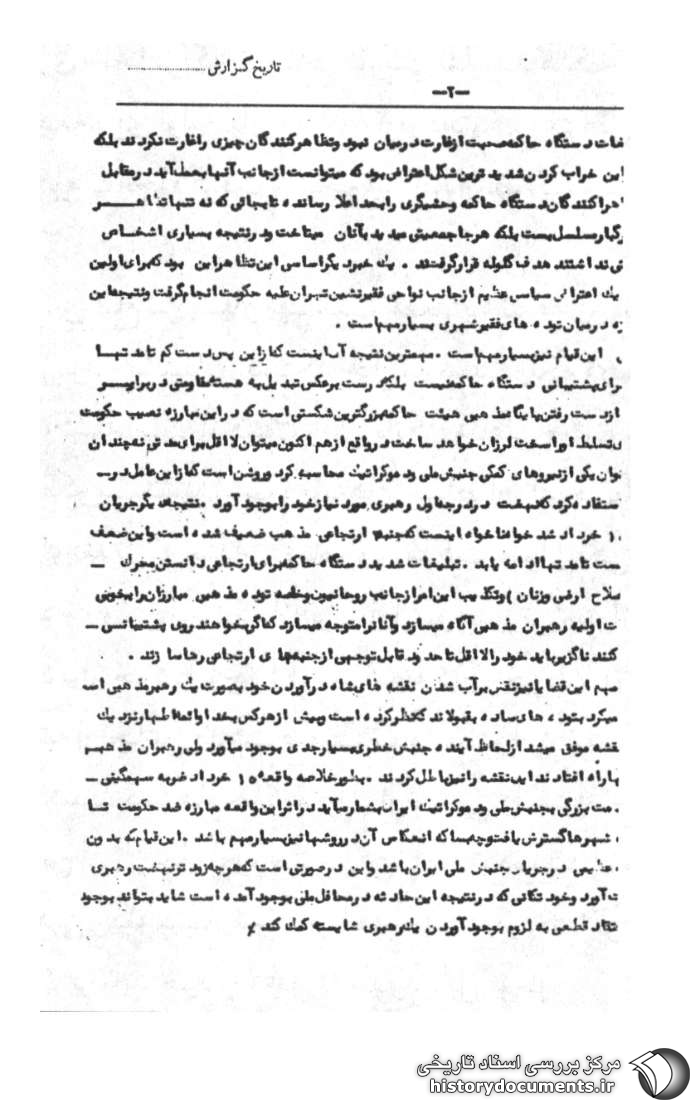 تاریخ گزارش
—۲—
دستگاه حاکمه صحبت از غارت در میان نبود و تظاهرکنندگان چیزی را غارت نکردند بلکه
این خراب کردن شدیدترین شکل اعتراض بود که میتوانست از جانب آنها بعمل آید در مقابل
دستگاه حاکمه وحشیگری را بحد اعلا رسانده تا بجائی که نه تنها
مسلسل بست بلکه هر جا جمعیتی میدید بآنان میتاخت و در نتیجه بسیاری اشخاص
نداشتند هدف گلوله قرار گرفتند . یک خبر دیگر اساسی این تظاهر این بود که برای اولین
یک اعتراض سیاسی عظیم از جانب نواحی فقیرنشین تهران علیه حکومت انجام گرفت و نتیجه این
در میان توده های فقیر شهری بسیار مهم است .
این قیام نیز بسیار مهم است . مهمترین نتیجه آن اینست که از این پس دست کم تا حد
پشتیبانی دستگاه حاکمه نیست بلکه درست برعکس تبدیل به هسته مقاومتی در برابر
از دست رفتن پایگاه مذهبی هیئت حاکمه بزرگترین شکستی است که در این مبارزه نصیب حکومت
تسلط او را سخت لرزان خواهد ساخت در واقع از هم اکنون میتوان لااقل برای مدتی نه چندان
یکی از نیروهای کمکی جنبش ملی و دموکراتیک محاسبه کرد و روشن است که از این عامل در
کرد که نهضت در درجه اول رهبری مورد نیاز خود را بوجود آورد . نتیجه دیگر جریان
خرداد شد خواه ناخواه اینست که جنبه ارتجاعی مذهب ضعیف شده است و این ضعف
تا حد تنها ادامه یابد . تبلیغات شدید دستگاه حاکمه برای ارتجاعی دانستن محرک
سلاح ارضی و زنان ) و تکذیب این امر از جانب روحانیون و خلصه توده مذهبی مبارزان را بخوبی
اولیه رهبران مذهبی آگاه میسازد و آنانرا متوجه میسازد که اگر بخواهند روی پشتیبانی
کنند ناگزیر باید خود را لااقل تا حدود قابل توجهی از جنبه های ارتجاعی رها سازند .
مهم این قضایا نیز نقش بر آب شدن نقشه های شاه در آوردن خود بصورت یک رهبر مذهبی است
میکرد بتوده های ساده بقبولاند که نظر کرده است و بیش از هر کس بخدا و ائمه اطهار نزدیک
نقشه موفق میشد از لحاظ آینده جنبش خطری بسیار جدی بوجود میآورد ولی رهبران مذهبی
براه افتادند این نقشه را نیز باطل کردند . بطور خلاصه واقعه ۱۵ خرداد ضربه سهمگینی
بزرگی بجنبش ملی و دموکراتیک ایران بشمار میآید در اثر این واقعه مبارزه ضد حکومت تا
شهرها گسترش یافت و چه بسا که انعکاس آن در روستاها نیز بسیار مهم باشد . این قیام که بدون
عظیمی در جریان جنبش ملی ایران باشد و این در صورتی است که هر چه زودتر نهضت رهبری
آورد و خود تکانی که در نتیجه این حادثه در محافل ملی بوجود آمده است شاید بتواند بوجود
قطعی به لزوم بوجود آوردن یک رهبری شایسته کمک کند
مرکز بررسی اسناد تاریخی
historydocuments.ir